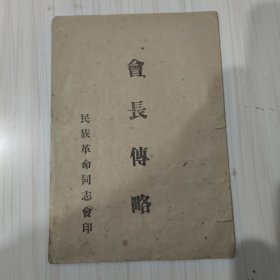 會長傳略
民族革命同志會印